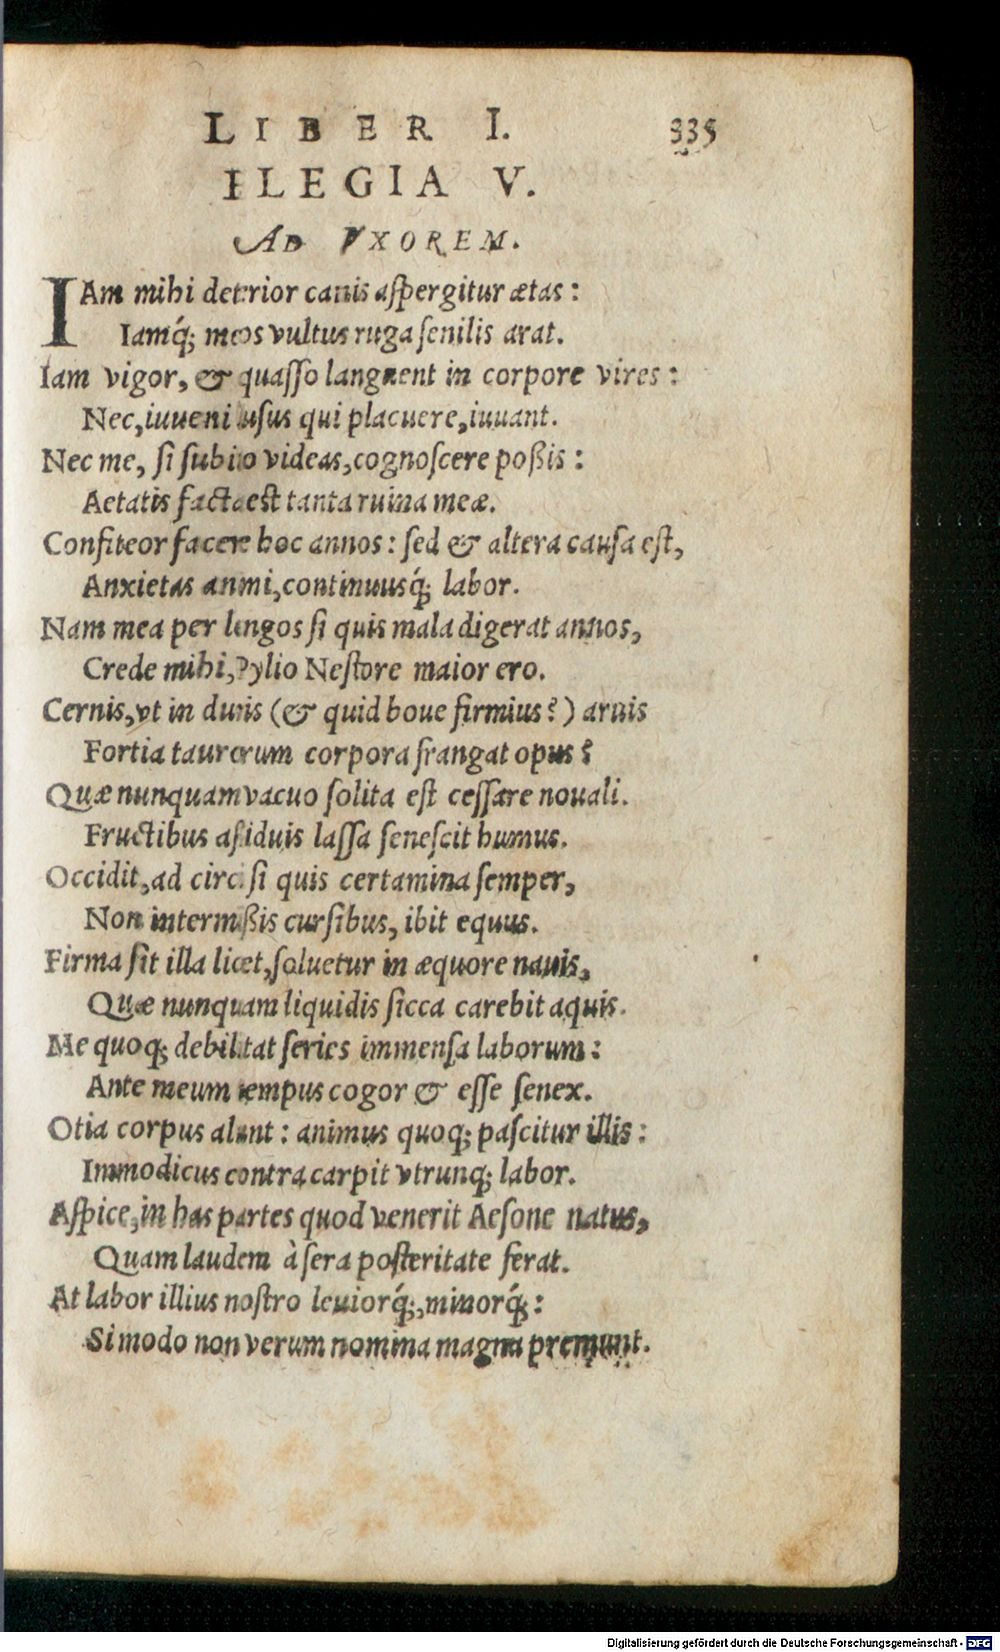 LIBER I. 335
ELEGIA V.
AD VXOREM.
IAm mihi deterior canis aſpergitur ætas:
Iamq́; meos vultus ruga ſenilis arat.
Iam vigor, & quaſſo languent in corpore vires:
Nec, iuueni uſus qui placuere, iuuant.
Nec me, ſi ſubito videas, cognoſcere poßis:
Aetatis facta est tanta ruina meæ.
Confiteor facere hoc annos: ſed & altera cauſa eſt,
Anxietas animi, continuusq́; labor.
Nam mea per longos ſi quis mala digerat annos,
Crede mihi, Pylio Neſtore maior ero.
Cernis, vt in duris (& quid boue firmius?) aruis
Fortia taurorum corpora frangat opus?
Quæ nunquam vacuo ſolita eſt ceſſare nouali.
Fructibus aſsiduis laſſa ſeneſcit humus.
Occidit, ad circi ſi quis certamina ſemper,
Non intermißis curſibus, ibit equus.
Firma ſit illa licet, ſoluetur in æquore nauis,
Quæ nunquam liquidis ſicca carebit aquis.
Me quoq; debilitat ſeries immenſa laborum:
Ante meum tempus cogor & eſſe ſenex.
Otia corpus alunt: animus quoq; paſcitur illis:
Immodicus contra carpit vtrunq; labor.
Aſpice, in has partes quod venerit Aeſone natus,
Quam laudem à ſera poſteritate ferat.
At labor illius noſtro leuiorq́;, minorq́;:
Si modo non verum nomina magna premunt.
Digitalisierung gefördert durch die Deutsche Forschungsgemeinschaft - DFG